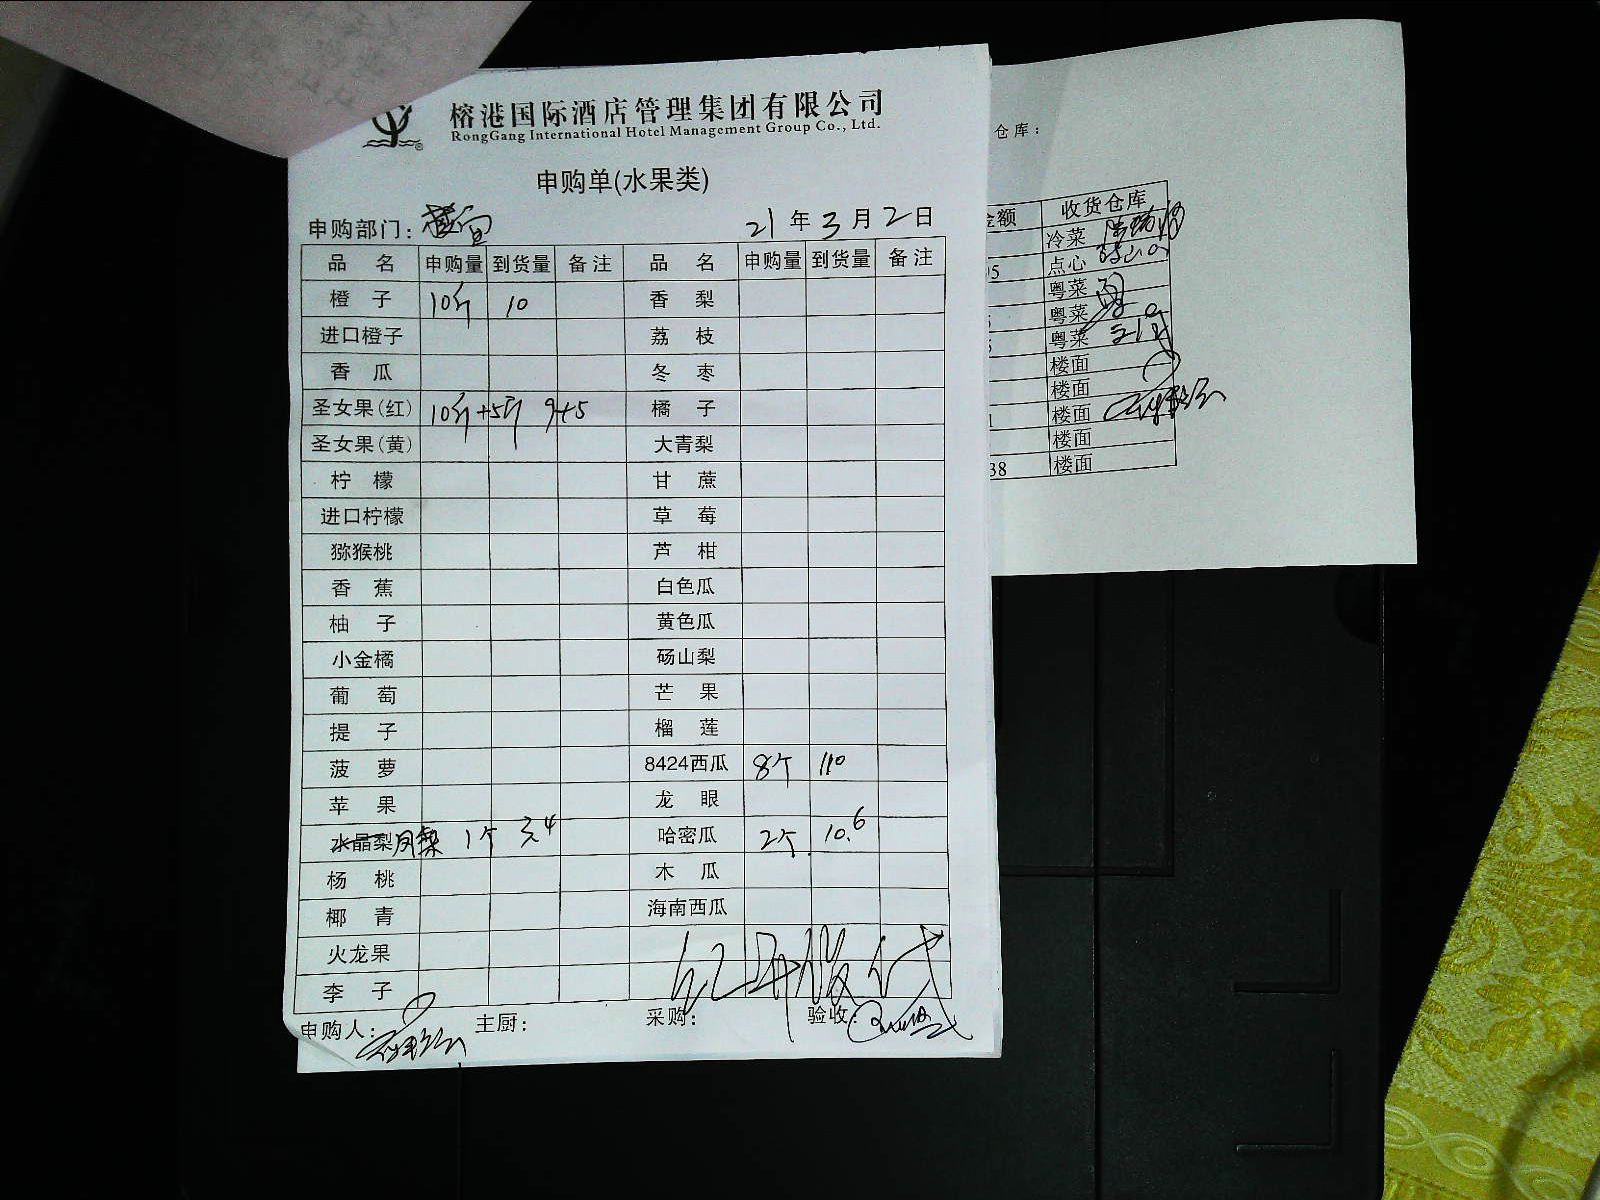 榕港国际酒店管理集团有限公司
RongGang International Hotel Management Group Co., Ltd.
申购单(水果类)
申购部门：
21 年 3 月 2 日
品 名 申购量 到货量 备注 品 名 申购量 到货量 备注
橙 子 10斤 10 香 梨
进口橙子 荔 枝
香 瓜 冬 枣
圣女果(红) 10斤+5斤 9+5 橘 子
圣女果(黄) 大青梨
柠 檬 甘 蔗
进口柠檬 草 莓
猕猴桃 芦 柑
香 蕉 白色瓜
柚 子 黄色瓜
小金橘 砀山梨
葡 萄 芒 果
提 子 榴 莲
菠 萝 8424西瓜 8个 110
苹 果 龙 眼
水晶梨 凤梨 1个 哈密瓜 2个 10.6
杨 桃 木 瓜
椰 青 海南西瓜
火龙果
李 子
申购人： 主厨： 采购： 验收：
仓库：
金额 收货仓库
冷菜
95 点心
粤菜
粤菜
粤菜
楼面
楼面
楼面
楼面
38 楼面